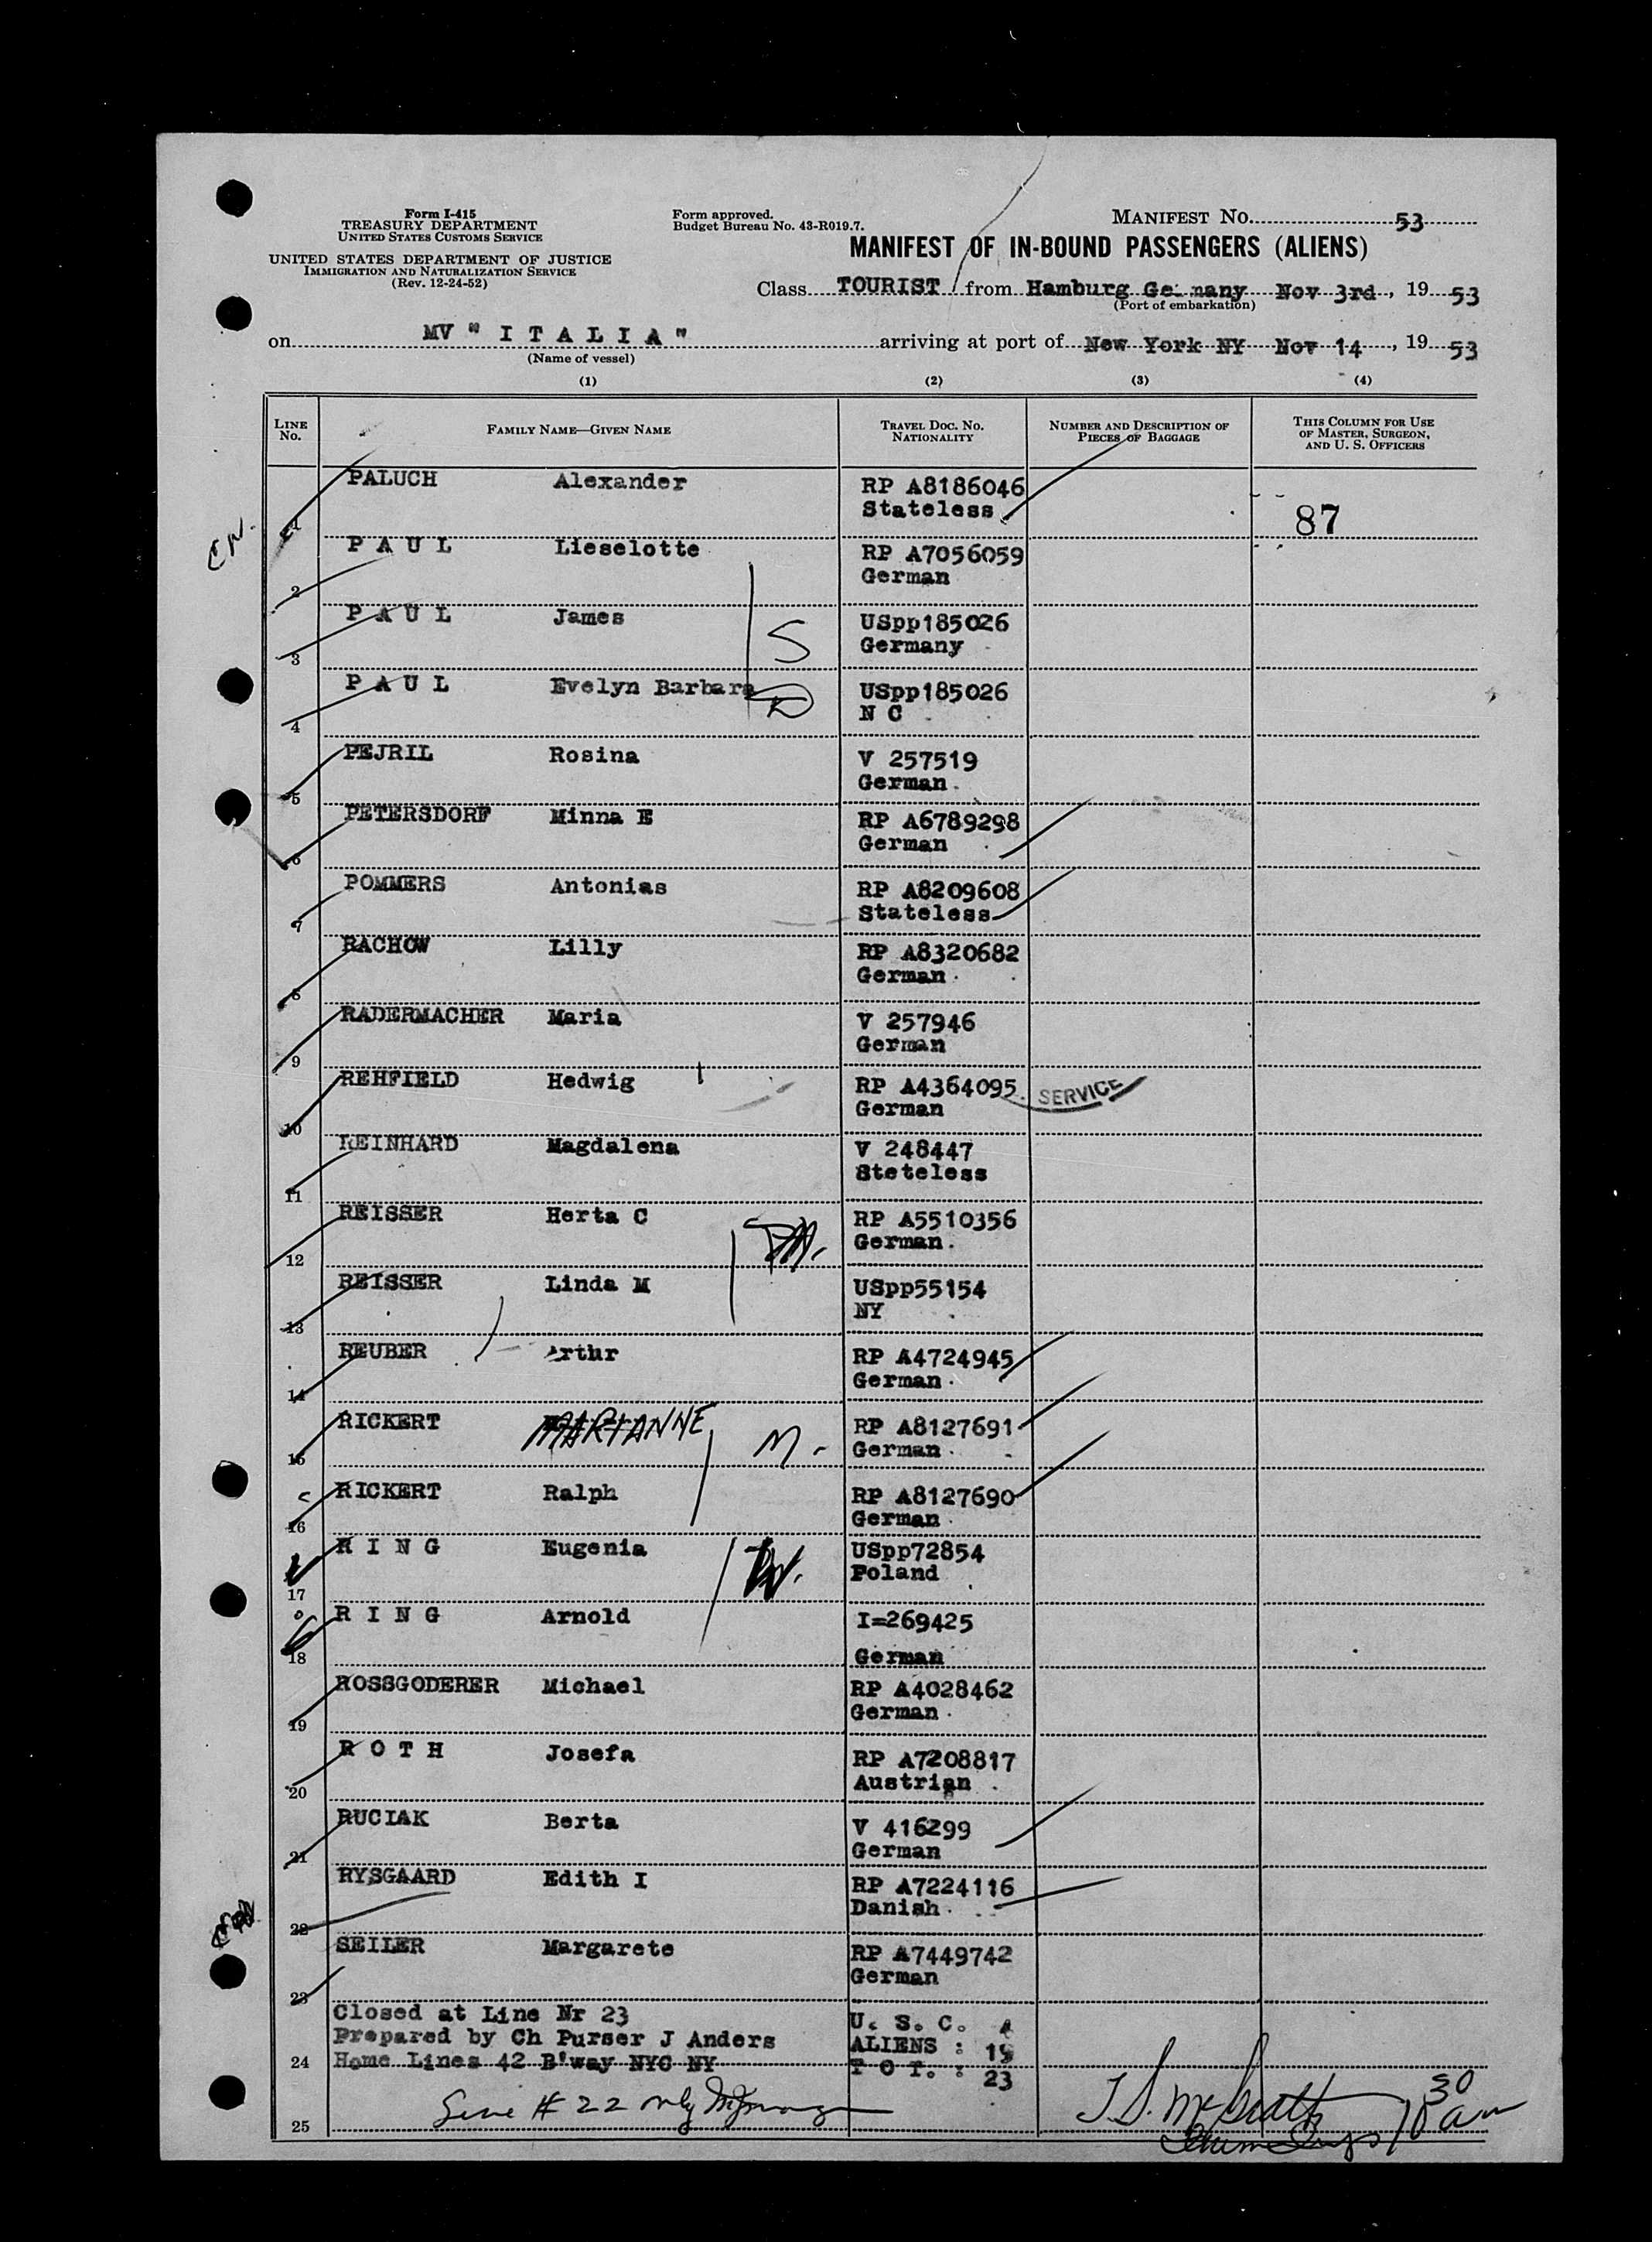 Form I-415
TREASURY DEPARTMENT
UNITED STATES CUSTOMS SERVICE
UNITED STATES DEPARTMENT OF JUSTICE
IMMIGRATION AND NATURALIZATION SERVICE
(Rev. 12-24-52)
Form approved.
Budget Bureau No. 43-R019.7.
MANIFEST NO. 53
MANIFEST OF IN-BOUND PASSENGERS (ALIENS)
Class TOURIST from Hamburg Germany Nov 3rd, 19 53
(Port of embarkation)
on MV " I T A L I A " arriving at port of New York NY Nov 14, 19 53
(Name of vessel)
(1) (2) (3) (4)
LINE NO. FAMILY NAME—GIVEN NAME TRAVEL DOC. NO. NATIONALITY NUMBER AND DESCRIPTION OF PIECES OF BAGGAGE THIS COLUMN FOR USE OF MASTER, SURGEON, AND U. S. OFFICERS
1 PALUCH Alexander RP A8186046 Stateless 87
2 P A U L Lieselotte RP A7056059 German
3 P A U L James S USpp185026 Germany
4 P A U L Evelyn Barbara D USpp185026 N C
5 PEJRIL Rosina V 257519 German
6 PETERSDORF Minna E RP A6789298 German
7 POMMERS Antonias RP A8209608 Stateless
8 RACHOW Lilly RP A8320682 German
9 RADERMACHER Maria V 257946 German
10 REHFIELD Hedwig RP A4364095 German SERVICE
11 REINHARD Magdalena V 248447 Steteless
12 REISSER Herta C RP A5510356 German
13 REISSER Linda M USpp55154 NY
14 REUBER Arthr RP A4724945 German
15 RICKERT MARIANNE M. RP A8127691 German
16 RICKERT Ralph RP A8127690 German
17 R I N G Eugenia W. USpp72854 Poland
18 R I N G Arnold I=269425 German
19 ROSSGODERER Michael RP A4028462 German
20 R O T H Josefa RP A7208817 Austrian
21 RUCIAK Berta V 416299 German
22 RYSGAARD Edith I RP A7224116 Danish
23 SEILER Margarete RP A7449742 German
Closed at Line Nr 23 U. S. C. 4
Prepared by Ch Purser J Anders ALIENS : 19
24 Home Lines 42 B'way NYC NY T O T. : 23
25 # 22 only
10 30 am